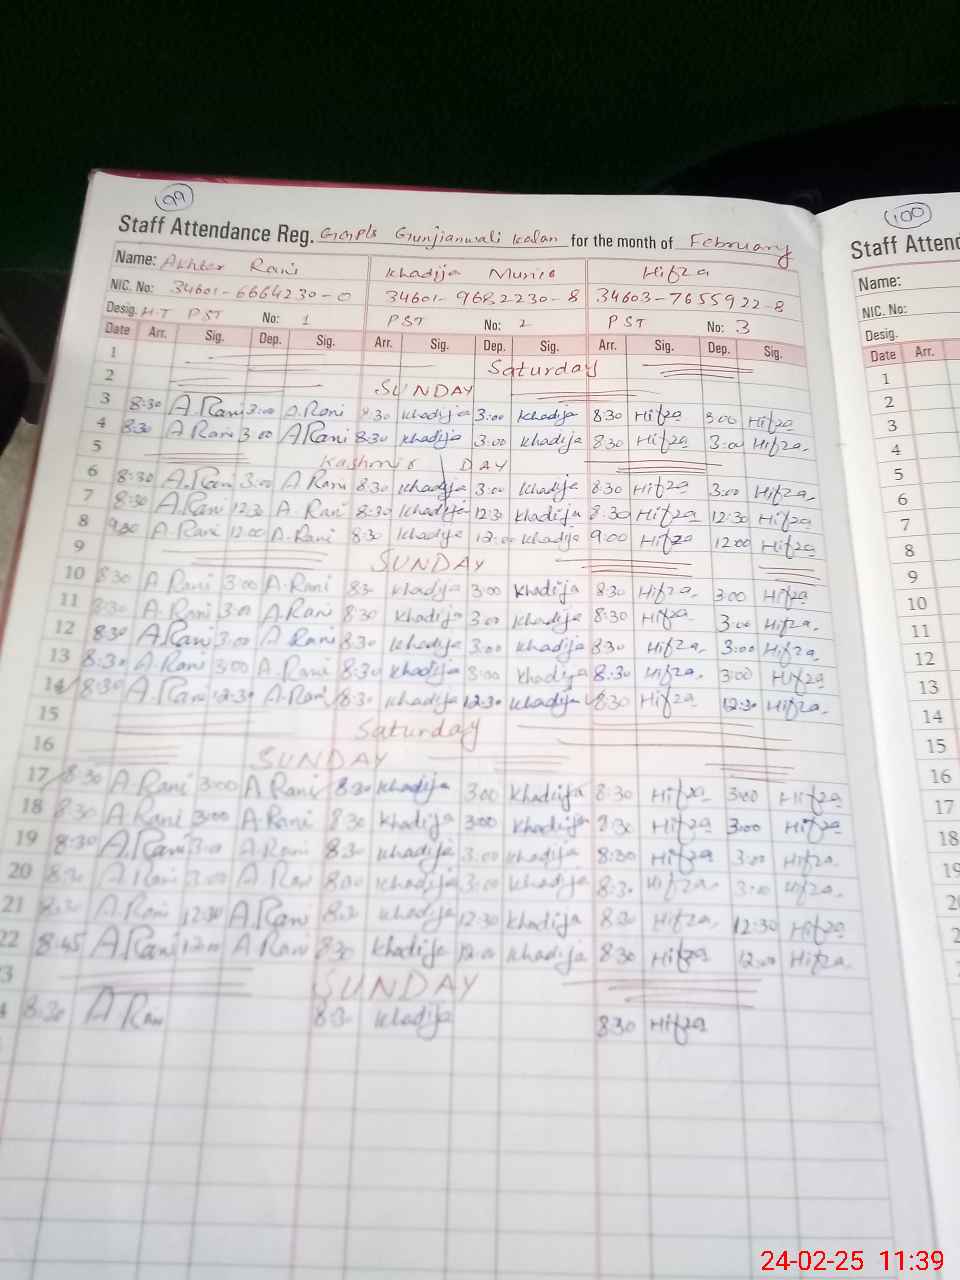 99
Staff Attendance Reg. Ggpls Gunjianwali Kalan for the month of February
Name: Akhter Rani Khadija Munir Hifza
NIC. No: 34601-6664230-0 34601-9682230-8 34603-7655922-8
Desig. H.T PST No: 1 PST No: 2 PST No: 3
Date Arr. Sig. Dep. Sig. Arr. Sig. Dep. Sig. Arr. Sig. Dep. Sig.
1 Saturday
2 SUNDAY
3 8:30 A.Rani 3:00 A.Rani 8:30 Khadija 3:00 Khadija 8:30 Hifza 3:00 Hifza
4 8:30 A Rani 3:00 A Rani 8:30 Khadija 3:00 Khadija 8:30 Hifza 3:00 Hifza.
5 Kashmir DAY
6 8:30 A.Rani 3:00 A Rani 8:30 Khadija 3:00 Khadija 8:30 Hifza 3:00 Hifza.
7 8:30 A.Rani 12:30 A.Rani 8:30 Khadija 12:30 Khadija 8:30 Hifza 12:30 Hifza
8 A.Rani 12:00 A.Rani 8:30 Khadija 12:00 Khadija 9:00 Hifza 12:00 Hifza
9 SUNDAY
10 8:30 A.Rani 3:00 A.Rani 8:30 Khadija 3:00 Khadija 8:30 Hifza. 3:00 Hifza
11 8:30 A.Rani 3:00 A.Rani 8:30 Khadija 3:00 Khadija 8:30 Hifza 3:00 Hifza.
12 8:30 A Rani 3:00 A Rani 8:30 Khadija 3:00 Khadija 8:30 Hifza. 3:00 Hifza
13 8:30 A.Rani 3:00 A.Rani 8:30 Khadija 3:00 Khadija 8:30 Hifza. 3:00 Hifza
14 8:30 A.Rani 12:30 A.Rani 8:30 Khadija 12:30 Khadija 8:30 Hifza 12:30 Hifza.
15 Saturday
16 SUNDAY
17 8:30 A.Rani 3:00 A.Rani 8:30 Khadija 3:00 Khadija 8:30 Hifza 3:00 Hifza
18 8:30 A.Rani 3:00 A.Rani 8:30 Khadija 3:00 Khadija 8:30 Hifza 3:00 Hifza
19 8:30 A.Rani 3:00 A Rani 8:30 Khadija 3:00 Khadija 8:30 Hifza 3:00 Hifza.
20 8:30 A Rani 3:00 A Rani 8:30 Khadija 3:00 Khadija 8:30 Hifza 3:00 Hifza.
21 8:30 A.Rani 12:30 A Rani 8:30 Khadija 12:30 Khadija 8:30 Hifza. 12:30 Hifza
22 8:45 A Rani 12:00 A Rani 8:30 Khadija 12:00 Khadija 8:30 Hifza 12:00 Hifza.
3 SUNDAY
4 8:30 A Rani 8:30 Khadija 8:30 Hifza
100
Staff Attend
Name:
NIC. No:
Desig.
Date Arr.
1
2
3
4
5
6
7
8
9
10
11
12
13
14
15
16
17
18
19
24-02-25 11:39